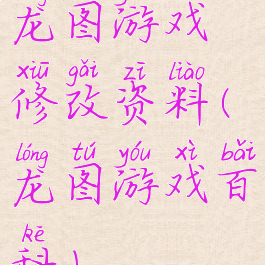 龙图游戏
xiū gǎi zī liào
修改资料(
lóng tú yóu xì bǎi
龙图游戏百
kē
科)